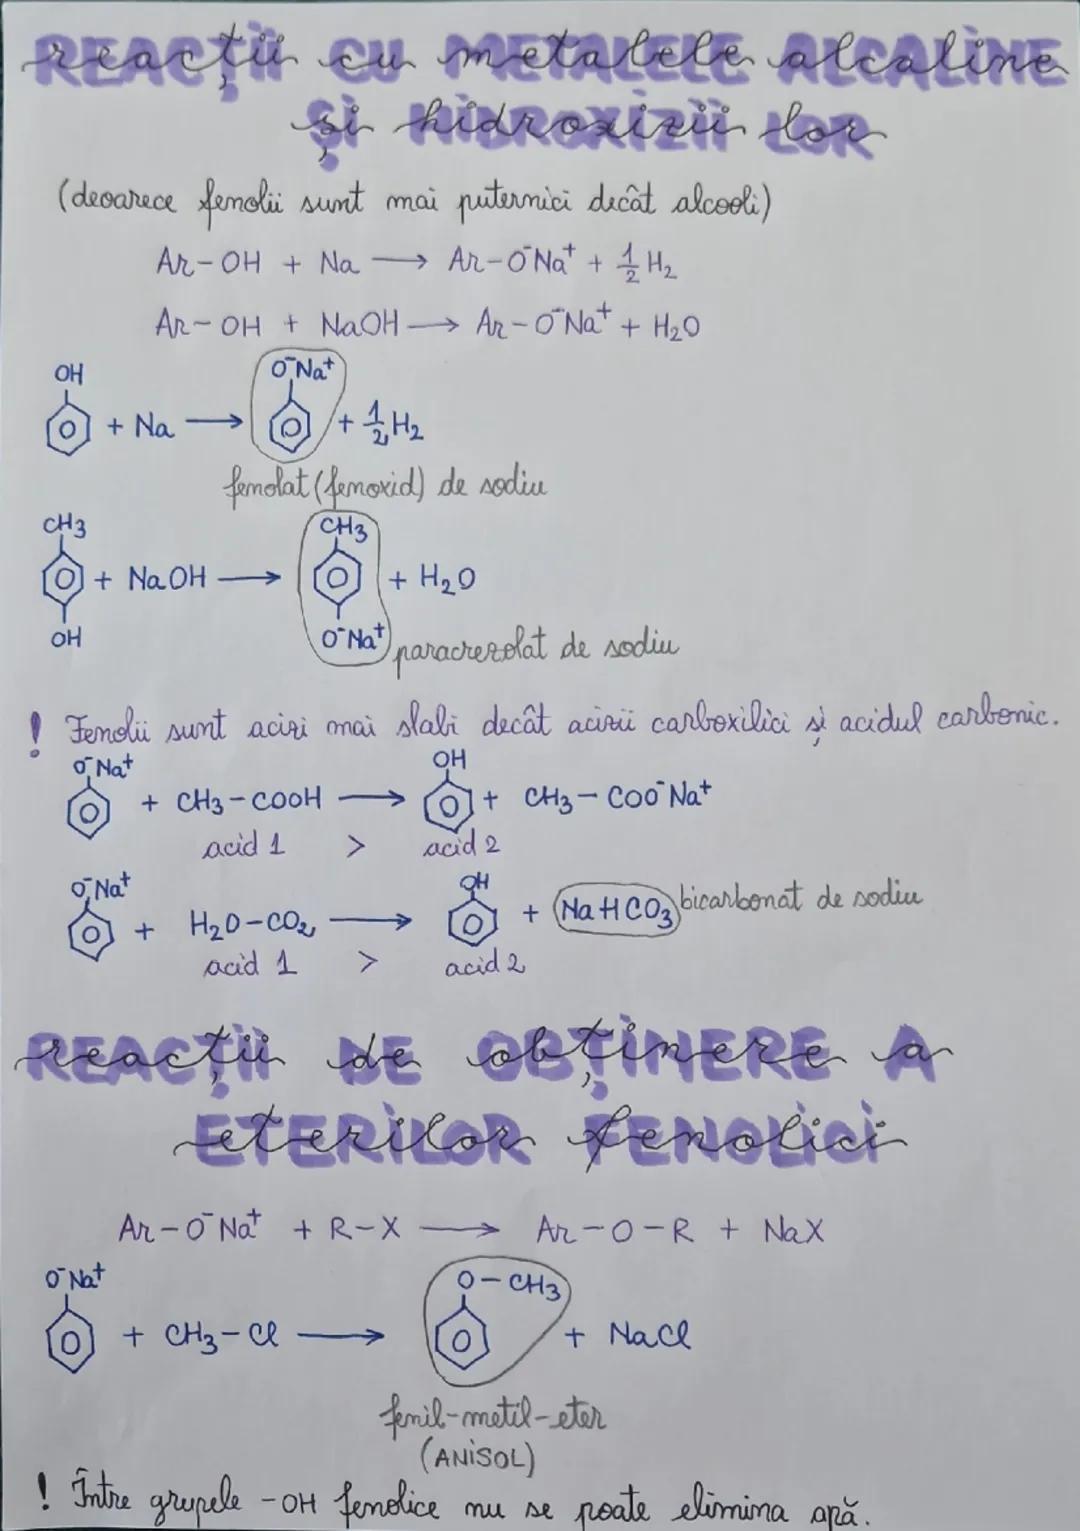 reacții cu METALELE alcaline
și hidroxizii lor
(deoarece fenolii sunt mai puternici decât alcooli)
Ar-OH + Na → Ar-O⁻Na⁺ + 1/2 H₂
Ar-OH + NaOH → Ar-O⁻Na⁺ + H₂O
OH O⁻Na⁺
+ Na → + 1/2 H₂
fenolat (fenoxid) de sodiu
CH₃ CH₃
+ NaOH → + H₂O
OH O⁻Na⁺ paracrezolat de sodiu
! Fenolii sunt acizi mai slabi decât acizii carboxilici și acidul carbonic.
O⁻Na⁺ OH
+ CH₃-COOH → + CH₃-COO⁻Na⁺
acid 1 > acid 2
O⁻Na⁺ OH
+ H₂O-CO₂ → + NaHCO₃ bicarbonat de sodiu
acid 1 > acid 2
reacții DE obținere a
ETERILOR fenolici
Ar-O⁻Na⁺ + R-X → Ar-O-R + NaX
O⁻Na⁺ O-CH₃
+ CH₃-Cl → + NaCl
fenil-metil-eter
(ANiSOL)
! Între grupele -OH fenolice nu se poate elimina apă.